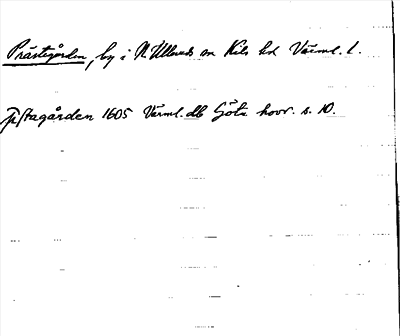 Prästegården, by i N Ullereds sn Kils hd Värml. l.
Pstagården 1605 Värml. db Göta hovr. s. 10.